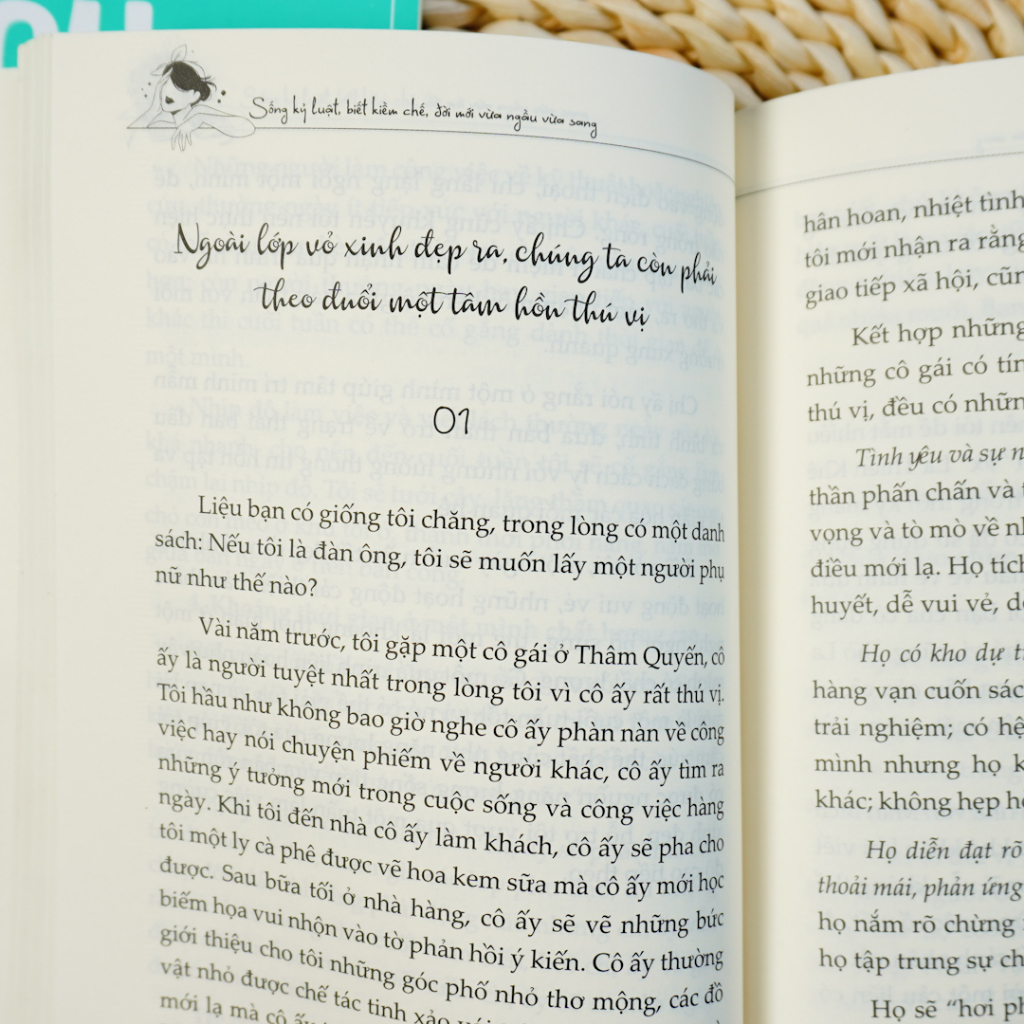 Sống kỷ luật, biết kiềm chế, đời mới vừa ngầu vừa sang
Ngoài lớp vỏ xinh đẹp ra, chúng ta còn phải
theo đuổi một tâm hồn thú vị
01
Liệu bạn có giống tôi chăng, trong lòng có một danh
sách: Nếu tôi là đàn ông, tôi sẽ muốn lấy một người phụ
nữ như thế nào?
Vài năm trước, tôi gặp một cô gái ở Thâm Quyến, cô
ấy là người tuyệt nhất trong lòng tôi vì cô ấy rất thú vị.
Tôi hầu như không bao giờ nghe cô ấy phàn nàn về công
việc hay nói chuyện phiếm về người khác, cô ấy tìm ra
những ý tưởng mới trong cuộc sống và công việc hàng
ngày. Khi tôi đến nhà cô ấy làm khách, cô ấy sẽ pha cho
tôi một ly cà phê được vẽ hoa kem sữa mà cô ấy mới học
được. Sau bữa tối ở nhà hàng, cô ấy sẽ vẽ những bức
biếm họa vui nhộn vào tờ phản hồi ý kiến. Cô ấy thường
giới thiệu cho tôi những góc phố nhỏ thơ mộng, các đồ
vật nhỏ được chế tác tinh xảo
mới lạ mà cô
hân hoan, nhiệt tình
tôi mới nhận ra rằng
giao tiếp xã hội, cũn
Kết hợp những
những cô gái có tín
thú vị, đều có nhữn
Tình yêu và sự n
thần phấn chấn và t
vọng và tò mò về nh
điều mới lạ. Họ tích
huyết, dễ vui vẻ, d
Họ có kho dự t
hàng vạn cuốn sác
trải nghiệm; có hệ
mình nhưng họ k
khác; không hẹp h
Họ diễn đạt rõ
thoải mái, phản ứng
họ nắm rõ chừng
họ tập trung sự ch
Họ sẽ "hơi ph